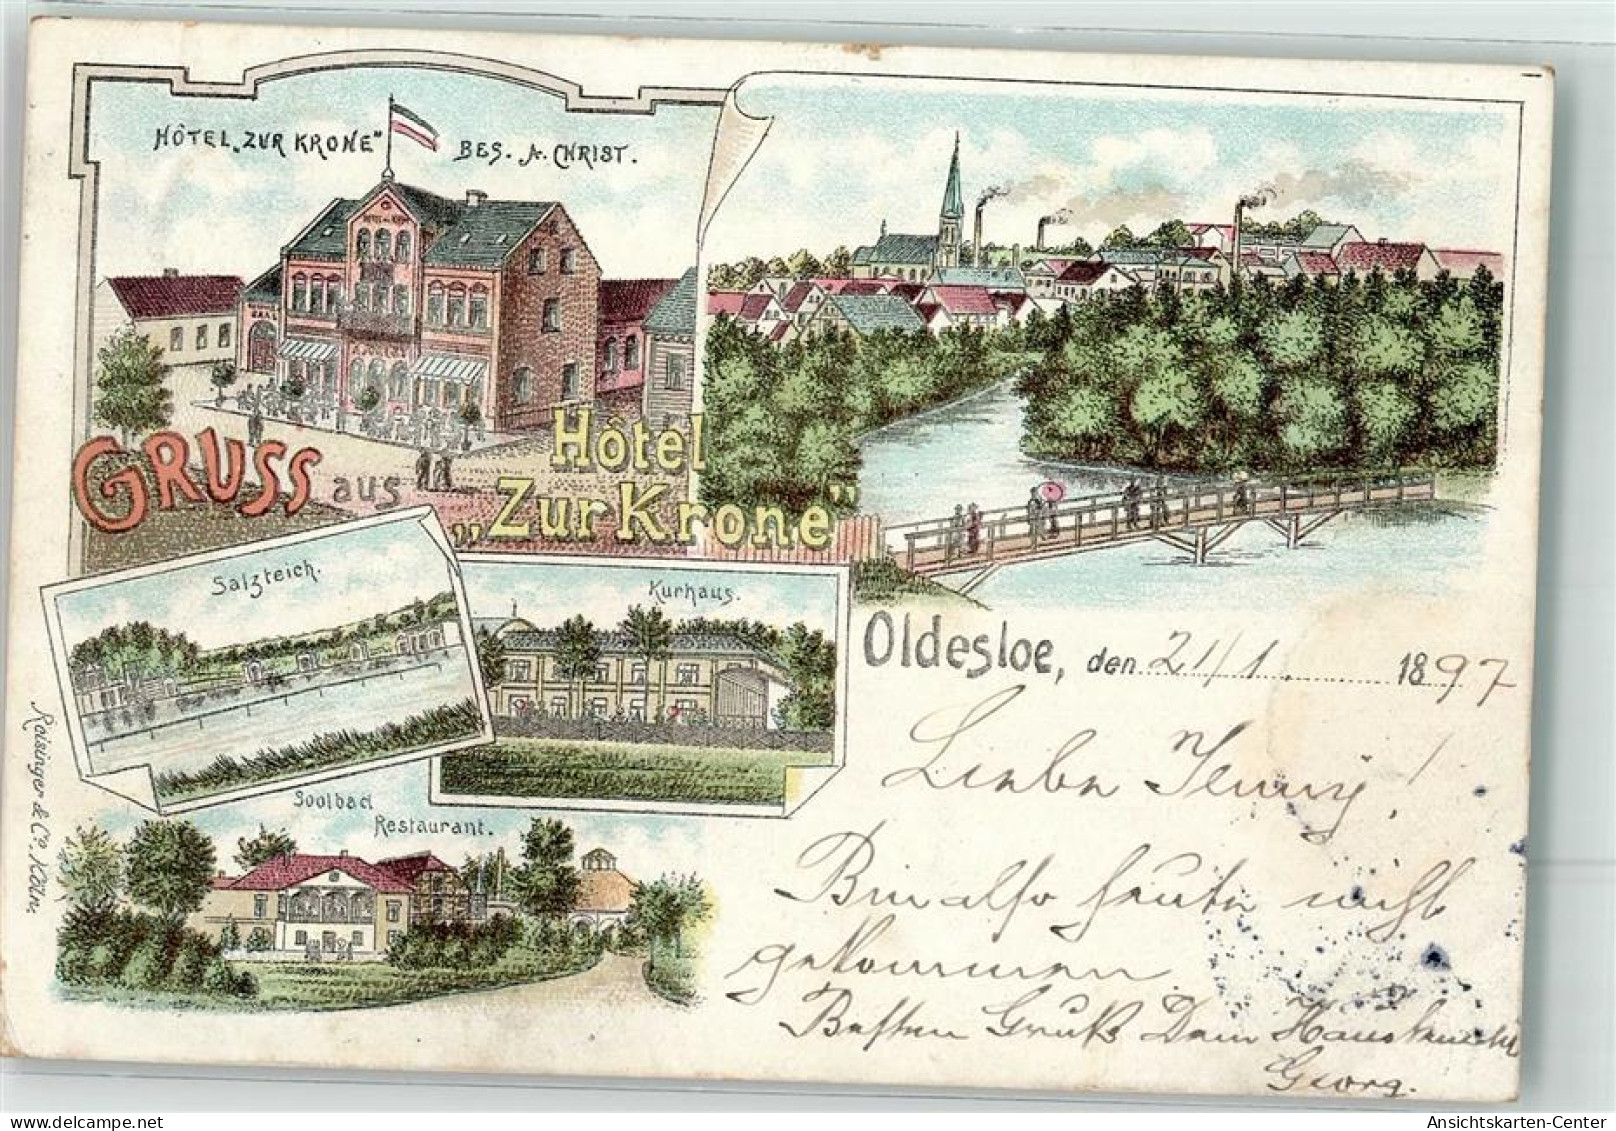 HÔTEL „ZUR KRONE" BES. A. CHRIST.
GRUSS aus
Hôtel
„Zur Krone"
Salzteich.
Kurhaus.
Soolbad
Restaurant.
Roisinger & Co. Köln.
Oldesloe, den 21/1. 1897
Liebe Jenny!
Bin also heute nicht
gekommen
Besten Gruß Dein
Georg.
Ansichtskarten-Center